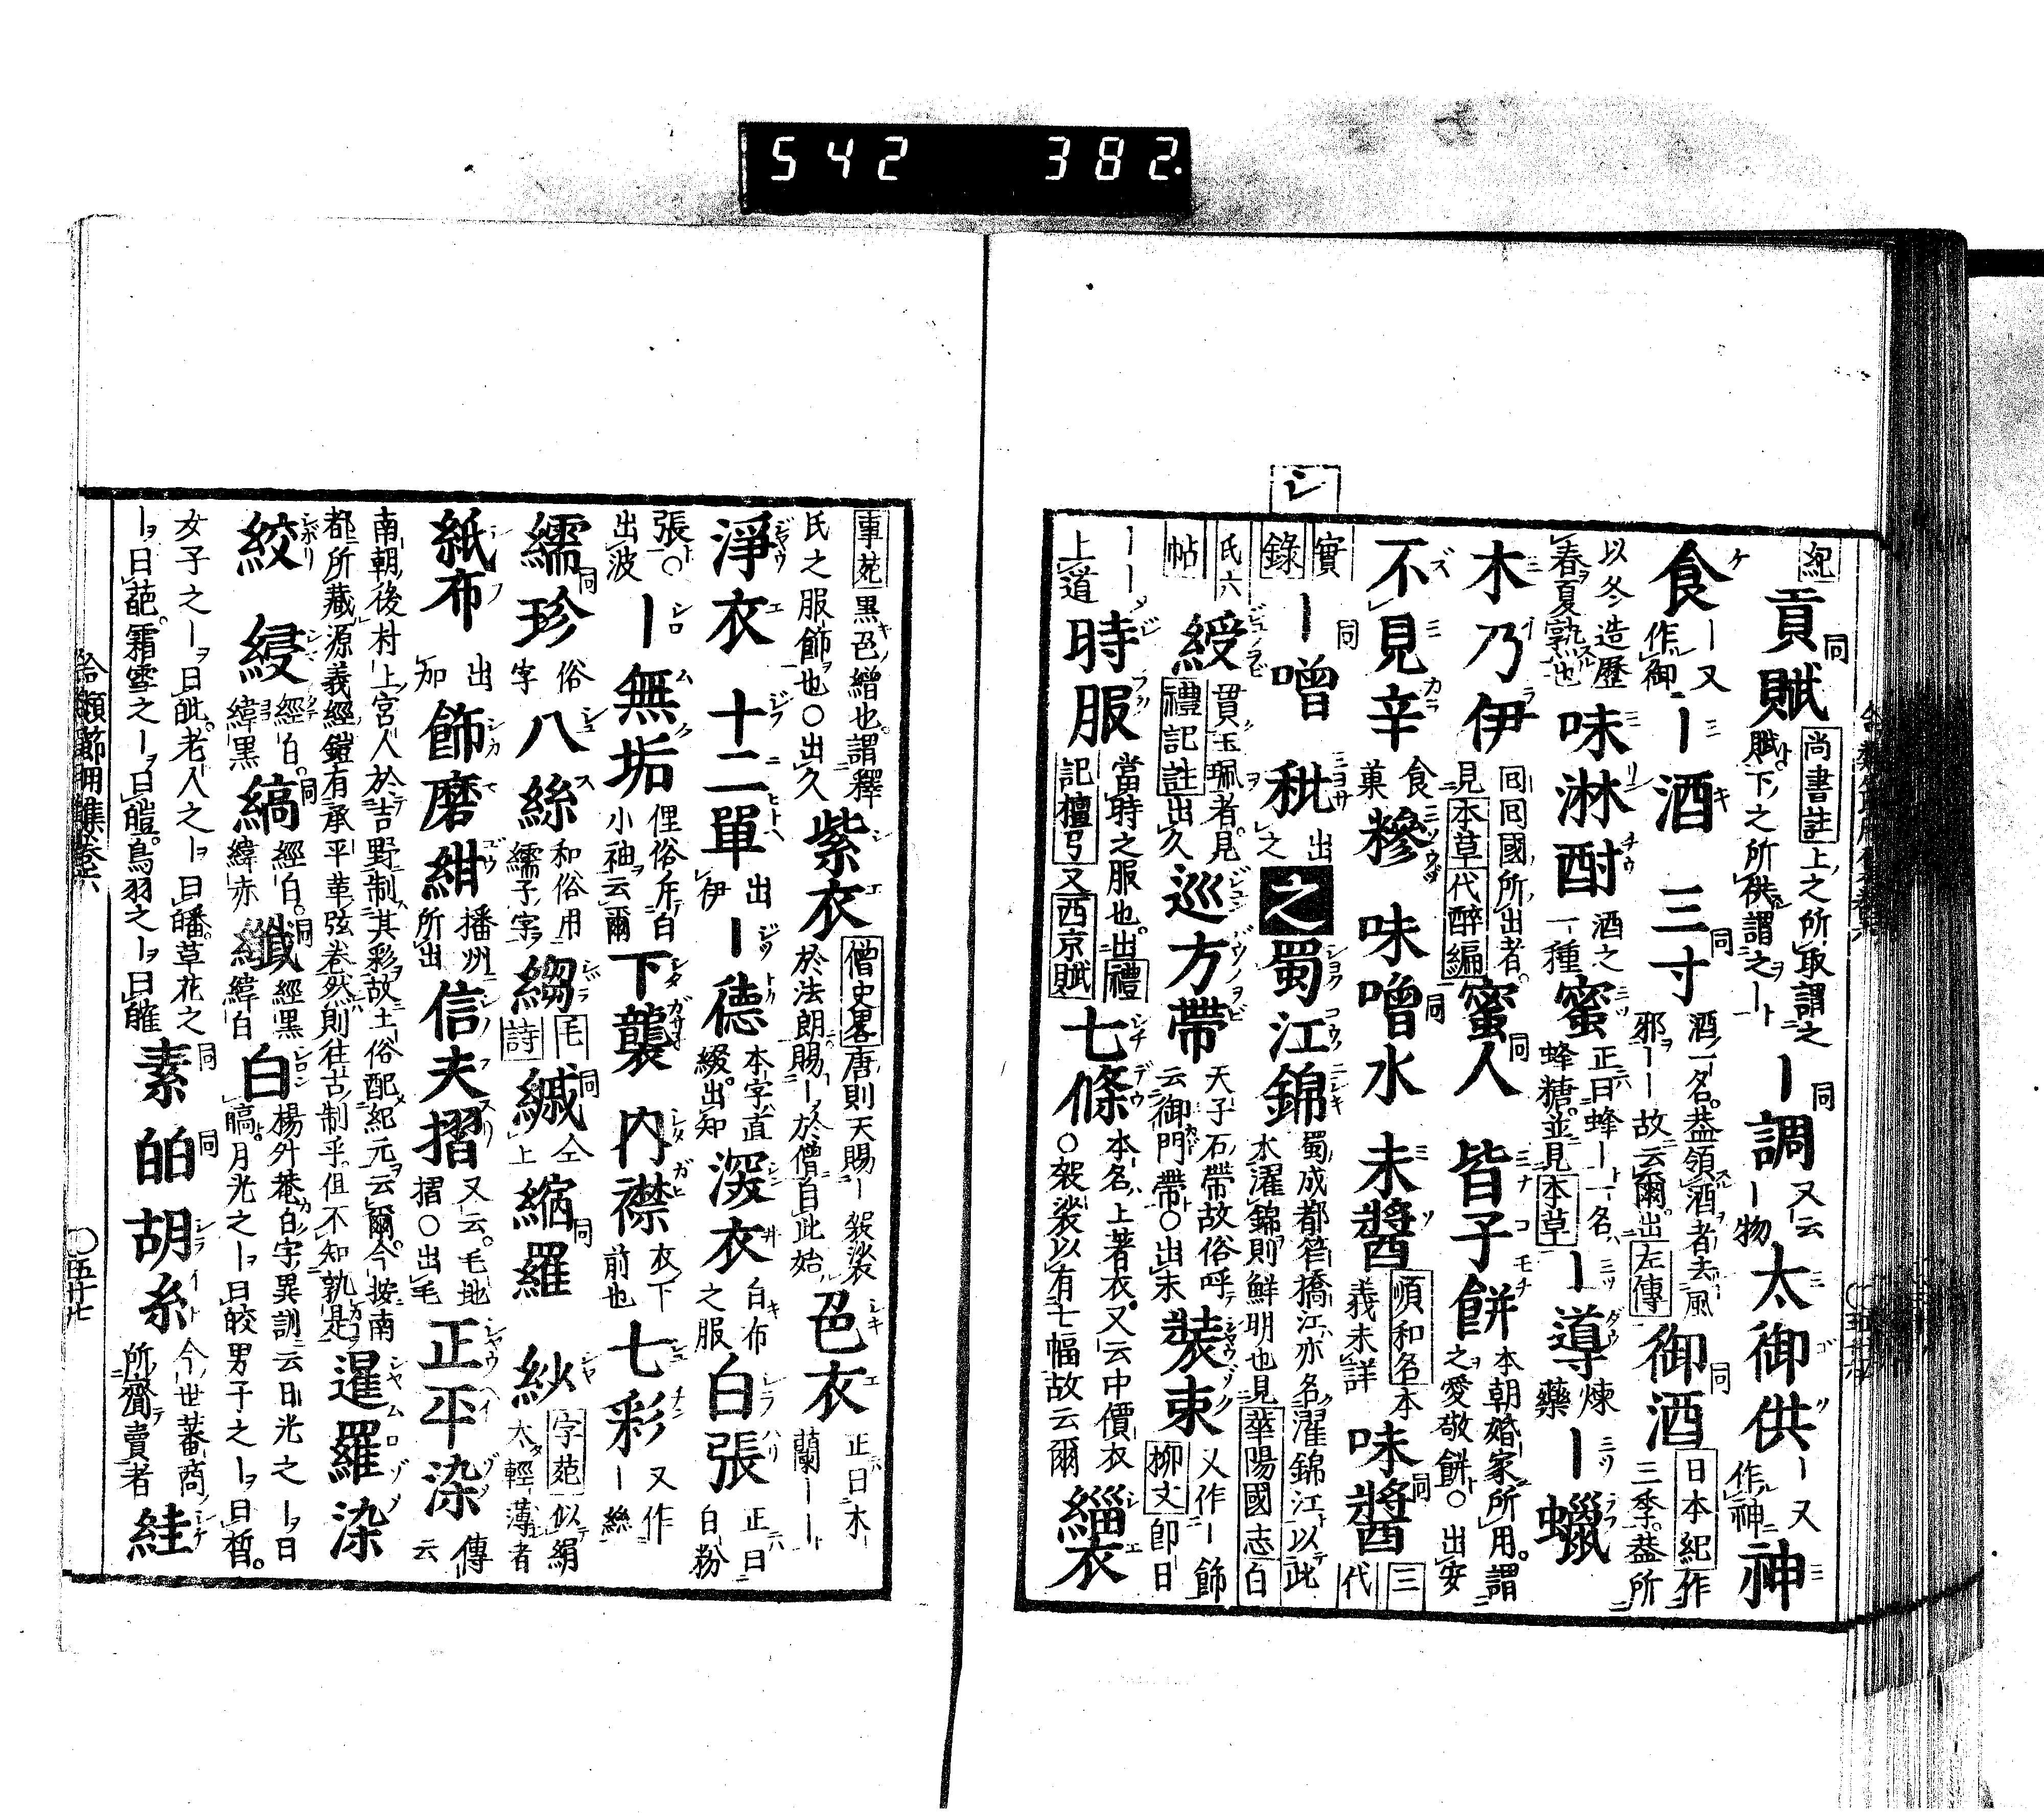 542 382.
シ
紀 貢賦 同 尚書註 上之所取謂之賦下之所供謂之ー ー調 同 又云ー物 太御供 ー又作神 神
食 ー又作御 ー酒 三寸 同 酒一名蓋領酒者去風邪ーー故云爾出左傳 御酒 同 日本紀作三季蓋所
以冬造歷春夏熟也 味淋酎 酒之一種 蜜 正曰蜂ー一名蜂糖並見本草 ー導 煉藥 ー蠟
木乃伊 回回國所出者見本草代醉編 蜜人 同 皆子餅 本朝婚家所用謂之愛敬餅○出安
不見辛 食菓 糝 味噌水 同 未醬 順和名本義未詳 味醬 同 三代
實錄 ー噌 同 秕 出之 之 蜀江錦 蜀成都笮橋江亦名濯錦江以此水濯錦則鮮明也見華陽國志白
氏六帖 綬 貫玉珮者見禮記註出久 巡方帶 天子石帶故俗呼云御門帶○出末 裝束 又作ー飾柳文即日
ーー上道 時服 當時之服也出禮記檀弓又西京賦 七條 本名上著衣又云中價衣○袈裟以有七幅故云爾 緇衣
事苑 黒色繒也謂釋氏之服飾也○出久 紫衣 僧史畧唐則天賜ー袈裟於法朗賜ー於僧自此始 色衣 正曰木蘭ーー
淨衣 十二單 出伊 ー德 本字直綴出知 深衣 白布之服 白張 正曰白粉
張○出波 ー無垢 俚俗斥白小袖云爾 下襲 内襟 衣下前也 七彩 又作ー絲
繻珍 同 俗字 八絲 和俗用繻子字 縐 毛詩 縬 同 仝上 縮羅 同 紗 字苑似絹太輕薄者
紙布 出加 飾磨紺 播州所出 信夫摺 又云毛地摺○出毛 正平染 傳云
南朝後村上宮人於吉野制其彩故土俗配紀元云爾今按南都所藏源義經鎧有承平革弦卷然則往古制乎但不知孰是 暹羅染
絞 綅 經白緯黒 縞 同 經白緯赤 纎 同 經黒緯白 白 楊外菴白字異訓云日光之ー曰皜月光之ー曰皎男子之ー曰晳
女子之ー曰㿟老人之ー曰皤草花之ー曰葩霜雪之ー曰皚鳥羽之ー曰皠 素 同 皛 同 胡糸 今世蕃商所齎賣者 絓
合類節用集卷六 ○五廿七